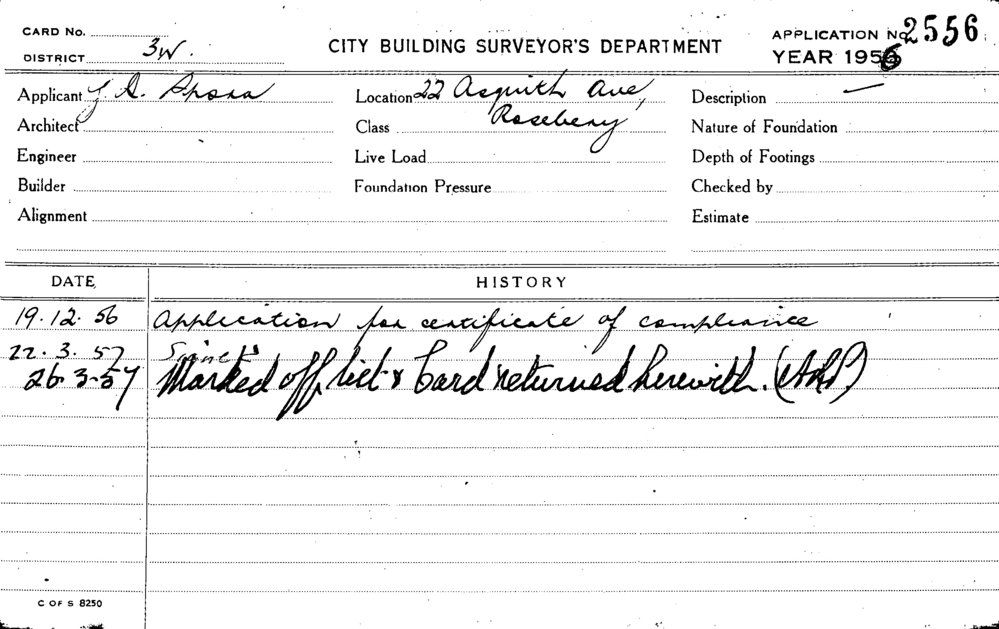 CARD No.
DISTRICT 3W.
CITY BUILDING SURVEYOR'S DEPARTMENT
APPLICATION No. 2556
YEAR 1956
Applicant
Location 22 Asquith Ave,
Rosebery
Description —
Architect
Class
Nature of Foundation
Engineer
Live Load
Depth of Footings
Builder
Foundation Pressure
Checked by
Alignment
Estimate
DATE HISTORY
19.12.56 Application for certificate of compliance
22.3.57
26.3.57 Marked off list & Card returned herewith.
C OF S 8250